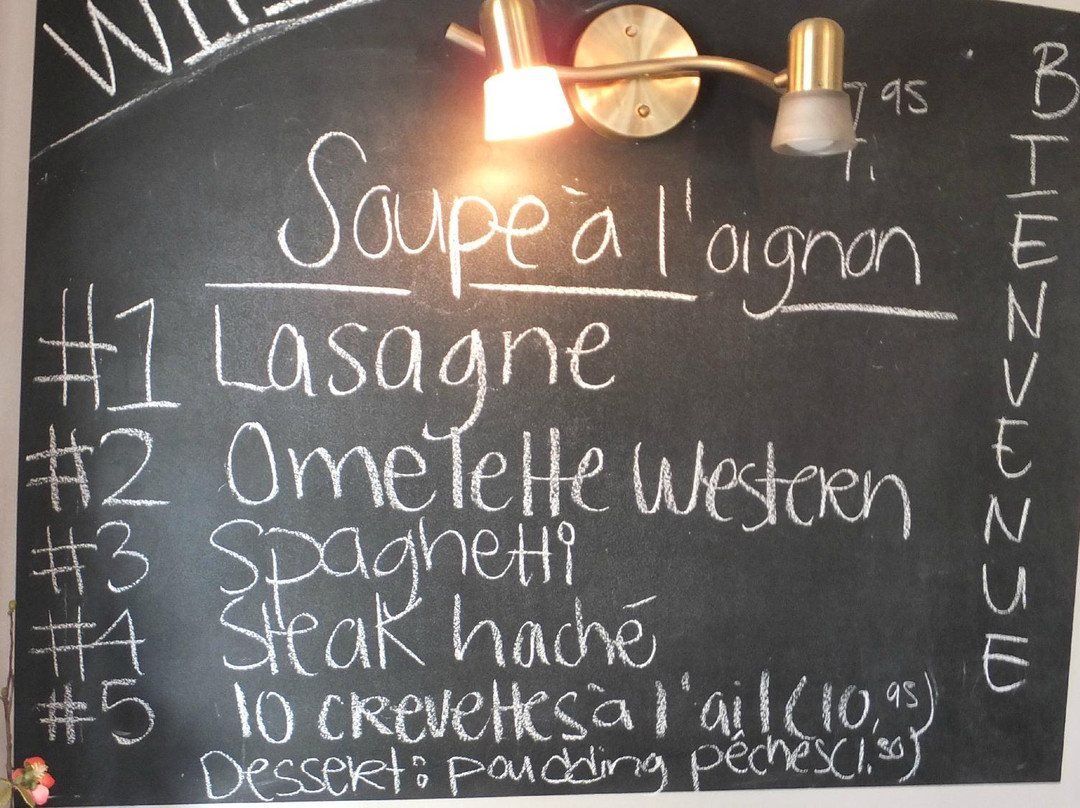 7.95
Soupe à l'oignon
#1 Lasagne
#2 Omelette Western
#3 Spaghetti
#4 Steak haché
#5 10 crevettes à l'ail (10.95)
Dessert: poudding pêches (1.50)
BIENVENUE